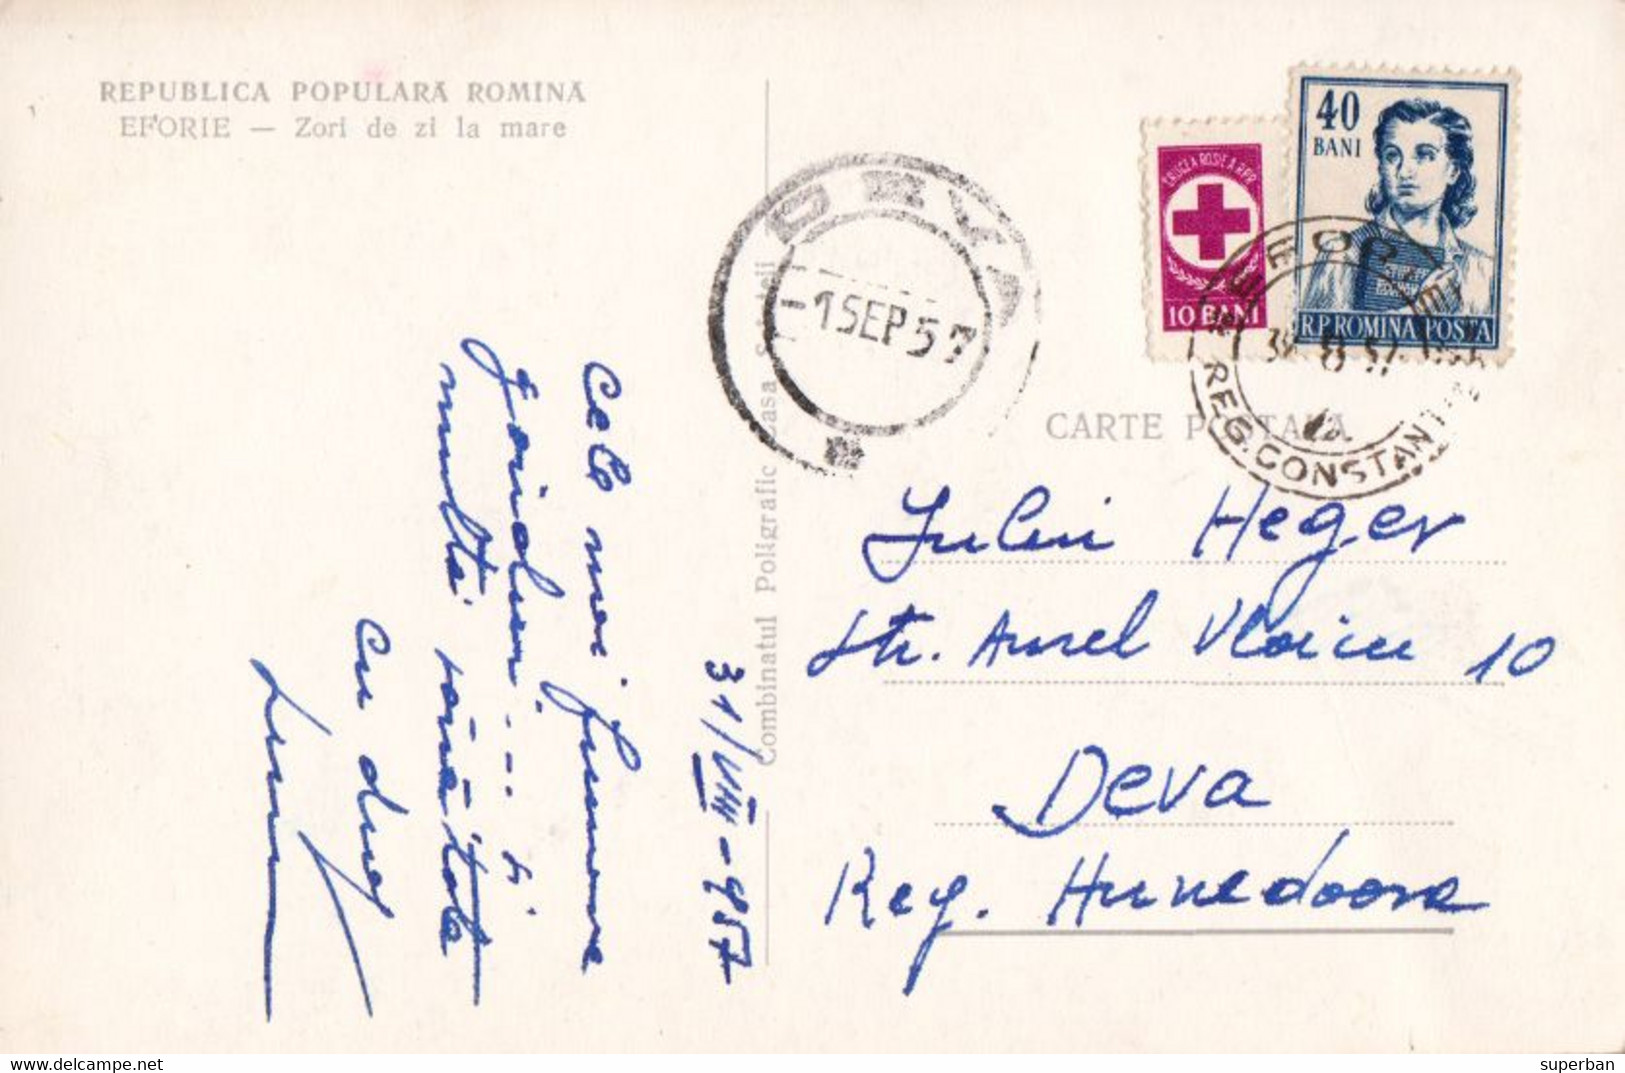 REPUBLICA POPULARĂ ROMÎNĂ
EFORIE — Zori de zi la mare
Cele mai frumoase
gînduri... și
multă sănătate
Cu drag
31/VIII-957
Combinatul Poligrafic Casa Scînteii
DEVA
-1 SEP 57
CRUCEA ROȘIE A R.P.R.
10 BANI
40
BANI
R.P.ROMINA POSTA
EFORIE
REG. CONSTANȚA
CARTE POȘTALĂ
Iuliu Heger
Str. Aurel Vlaicu 10
Deva
Reg. Hunedoara
delcampe.net
superban